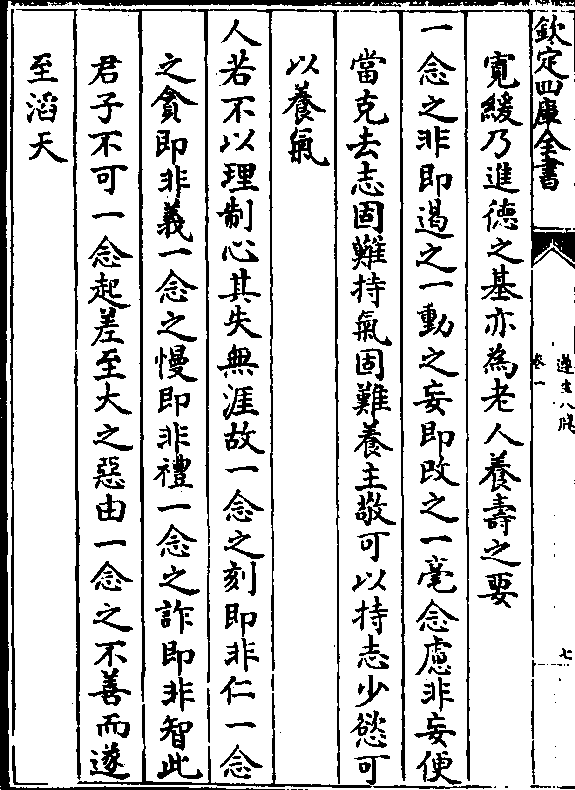 欽定四庫全書
遵生八牋
卷一
七
寛緩乃進德之基亦為老人養壽之要
一念之非即遏之一動之妄即改之一毫念慮非妄便
當克去志固難持氣固難養主敬可以持志少慾可
以養氣
人若不以理制心其失無涯故一念之刻即非仁一念
之貪即非義一念之慢即非禮一念之詐即非智此
君子不可一念起差至大之惡由一念之不善而遂
至滔天